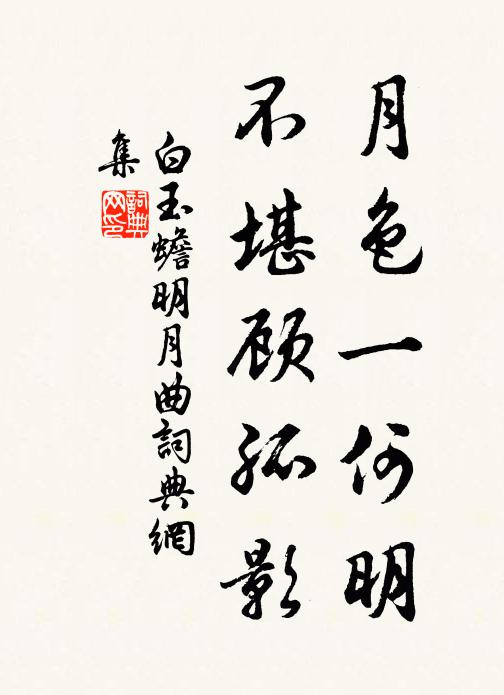 月色一何明
不堪顾孤影
白玉蟾明月曲詞典網
集
詞典网印